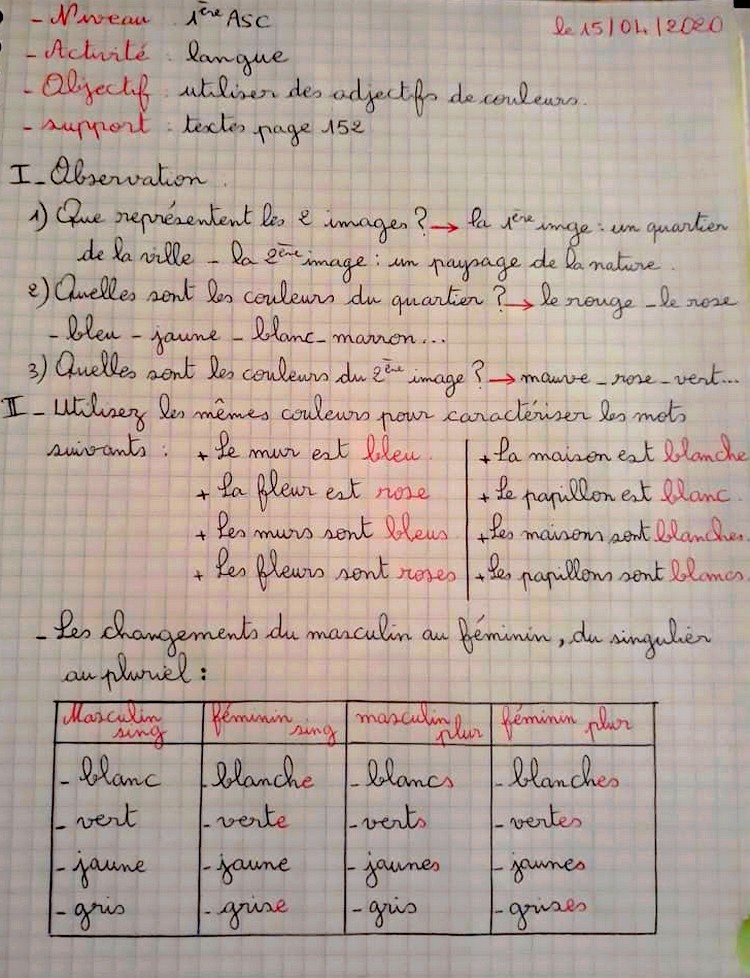 - Niveau : 1ère ASC
le 15/04/2020
- Activité : langue
- Objectif : utiliser des adjectifs de couleurs.
- support : textes page 152
I - Observation.
1) Que représentent les 2 images ? → la 1ère imge : un quartier
de la ville - la 2ème image : un paysage de la nature.
2) Quelles sont les couleurs du quartier ? → le rouge - le rose
- bleu - jaune - blanc - marron...
3) Quelles sont les couleurs du 2ème image ? → mauve - rose - vert...
II - Utilisez les mêmes couleurs pour caractériser les mots
suivants : + Le mur est bleu. + La maison est blanche
+ La fleur est rose + Le papillon est blanc.
+ Les murs sont bleus + Les maisons sont blanches.
+ Les fleurs sont roses + Les papillons sont blancs.
- Les changements du masculin au féminin, du singulier
au pluriel :
Masculin sing féminin sing masculin plur féminin plur
- blanc - blanche - blancs - blanches
- vert - verte - verts - vertes
- jaune - jaune - jaunes - jaunes
- gris - grise - gris - grises